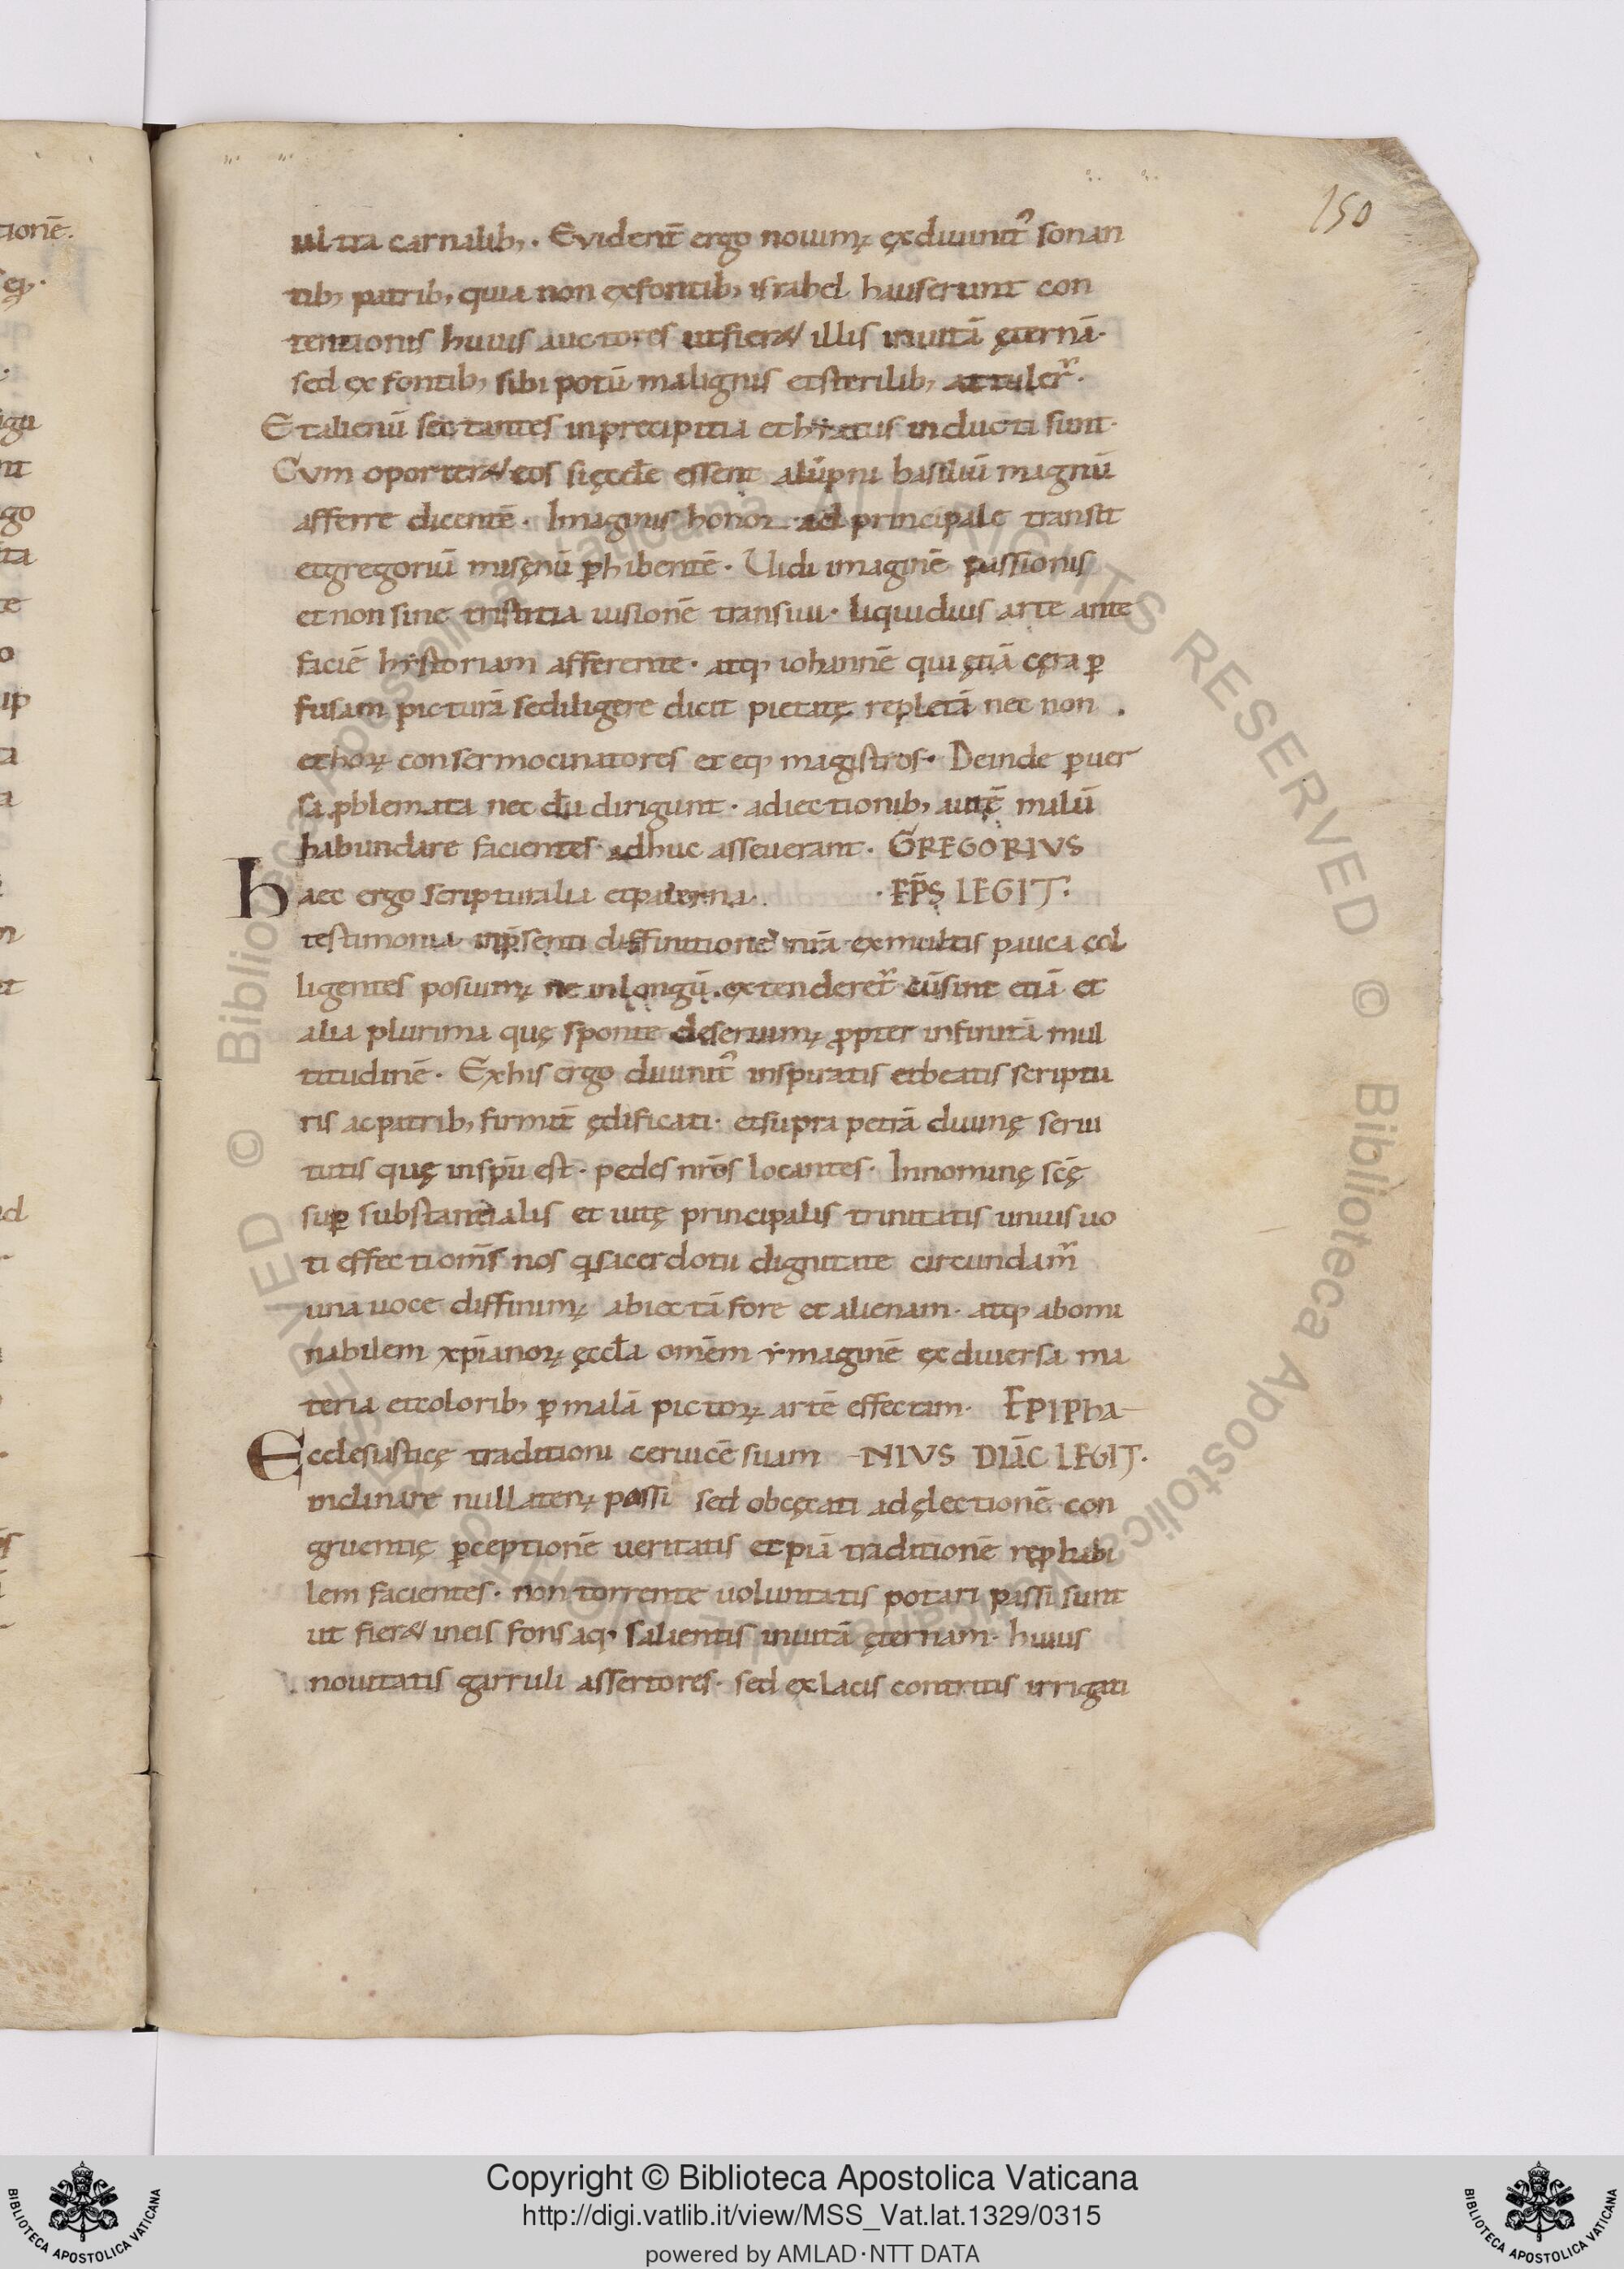 150
ul ita carnalib;. Evident̄ ergo nouimꝰ ex diuinit᷑ sonan
tib; patrib; quia non ex fontib; israhel hauserunt con
tentionis huius auctores ut fier& illis in uitā ęternā.
sed ex fontib; sibi potū malignis et sterilib; attuler̄.
Et alienū sectantes in precipitia et hiatus inducti sunt.
Cvm oporter& eos si ęccłe essent alūpni basiliū magnū
afferre dicentē. Imaginis honor ad principale transit
et gregoriū misęnū ꝑhibentē. Uidi imaginē passionis
et non sine tristitia uisionē transiui. liquidius arte ante
faciē hẏstoriam afferente. atq; iohannē qui ętiā cęra ꝑ
fusam picturā se diligere dicit pietatę repletā nec non
et hoꝝ consermocinatores et eq; magistros. Deinde ꝑuer
sa ꝓblemata nec dū dirigunt. adiectionib; autē malū
habundare facientes adhuc asseuerant. GREGORIVS
Haec ergo scripturalia et paterna. . EP̄S LEGIT:
testimonia in p̄senti diffinitione nrā ex multis pauca col
ligentes posuimꝰ ne in longū. extenderet᷑ cū sint etiā et
alia plurima quę sponte deseruimꝰ ꝓpter infinitā mul
titudinē. Ex his ergo diuinit᷑ inspiratis et beatis scriptu
ris ac patrib; firmit̄ ędificati. et supra petrā diuinę serui
tutis quę in sp̄u est. pedes nr̄os locantes. In nominę sc̄ę
suꝑ substantialis et uitę principalis trinitatis unius uo
ti effecti om̄s nos q̄ sacerdotii dignitate circundam᷑
una uoce diffinimꝰ abiectā fore et alienam. atq; abomi
nabilem xp̄ianoꝝ ęccła omēm ẏmaginē ex diuersa ma
teria et colorib; ꝑ malā pictoꝝ artē effectam. EPIPha-
Ecclesiasticę traditioni ceruicē suam -NIVS DIĀC LEGIT.
inclinare nullatenꝰ passi sed obcęcati ad ęlectionē con
gruentię ꝑceptionē ueritatis et piā traditionē rep̄habi
lem facientes. non torrente uoluntatis potari passi sunt
ut fier& in eis fons aq; salientis in uitā ęternam. huius
nouitatis garruli assertores. sed ex lacis contritis irrigati
Copyright © Biblioteca Apostolica Vaticana
http://digi.vatlib.it/view/MSS_Vat.lat.1329/0315
powered by AMLAD·NTT DATA
BIBLIOTECA APOSTOLICA VATICANA
BIBLIOTECA APOSTOLICA VATICANA